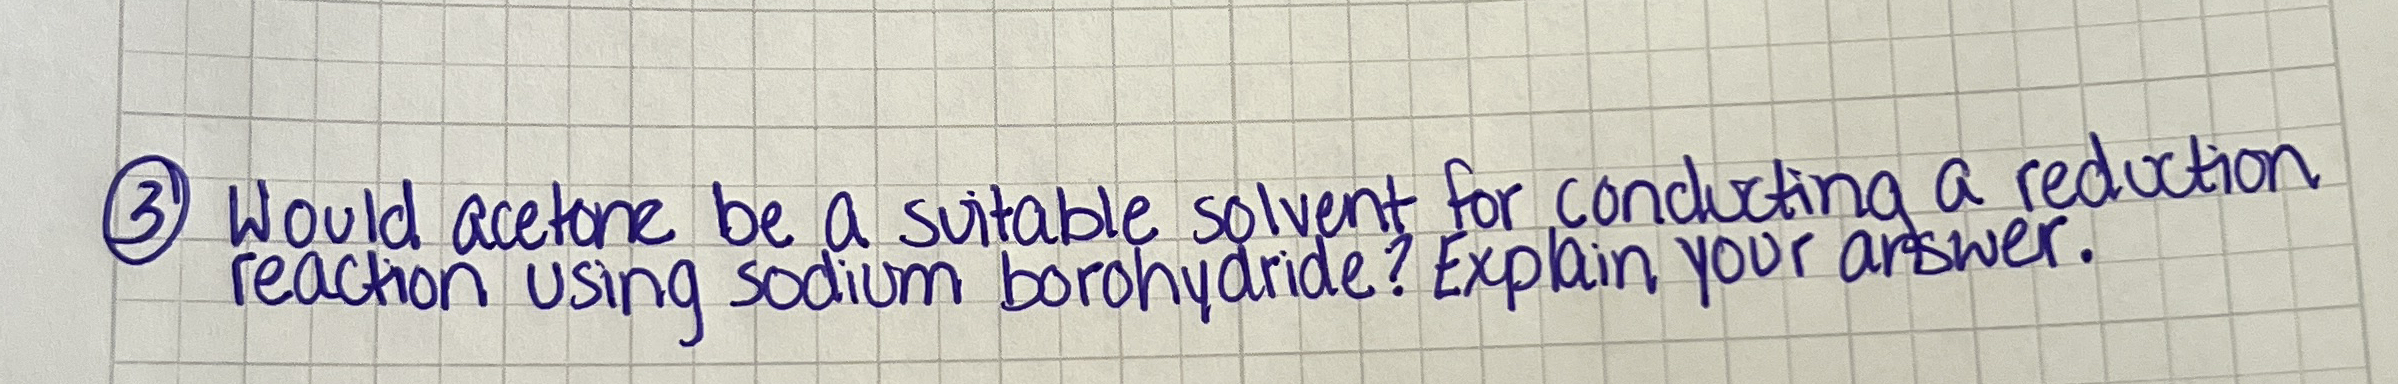 ③ Would acetone be a suitable solvent for conducting a reduction
reaction using sodium borohydride? Explain your answer.